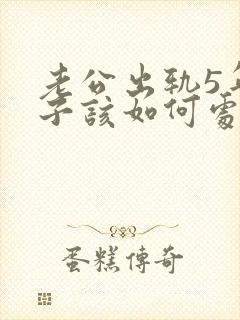 老公出轨5年
子該如何處
蛋糕傳奇